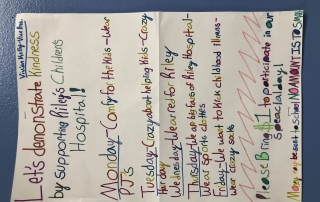 Let's demonstrate Kindness
by supporting Riley's Children's
Hospital!
Monday-Comfy for the kids-Wear
PJ's
Tuesday-Crazy about helping kids-Crazy
hair day
Wednesday-Wear red for Riley
Thursday-We are big fans of Riley Hospital-
Wear sports clothes
Friday-We want to kick childhood illness-
wear crazy socks
Please Bring $1 to participate in our
special day!
Money can be sent to school NO AMOUNT IS TO SMALL